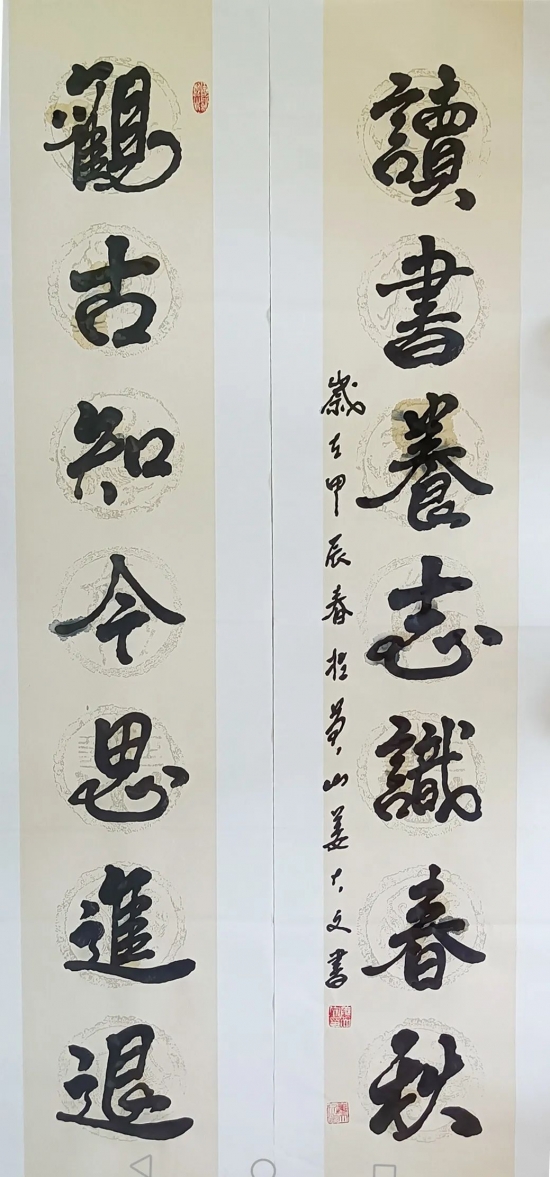 觀古知今思進退
讀書養志識春秋
歲在甲辰春於黃山姜大文書